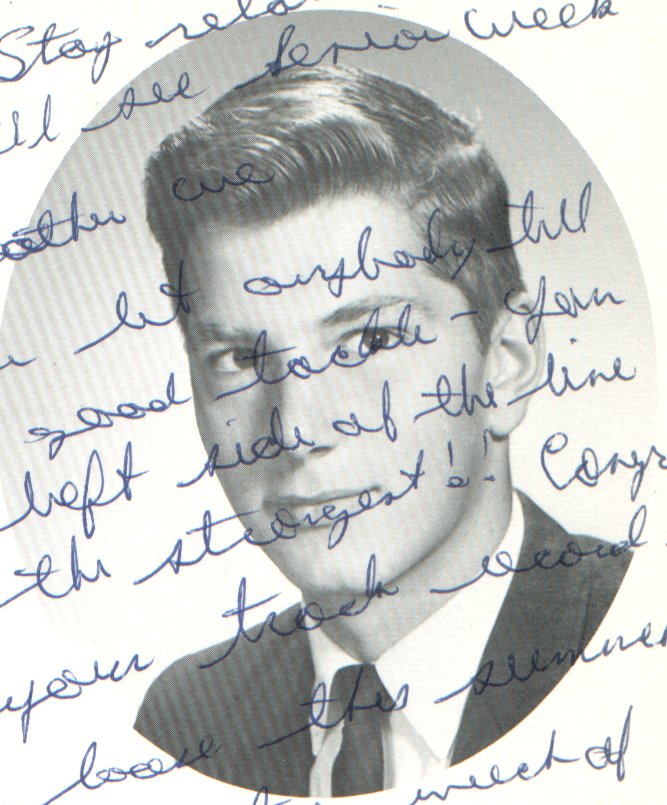 Stay rela
ll see senior week
eather one
let anybody tell
good tackle - You
left side of the line
the strongest!! Congr
your track record.
loose this summer
much of